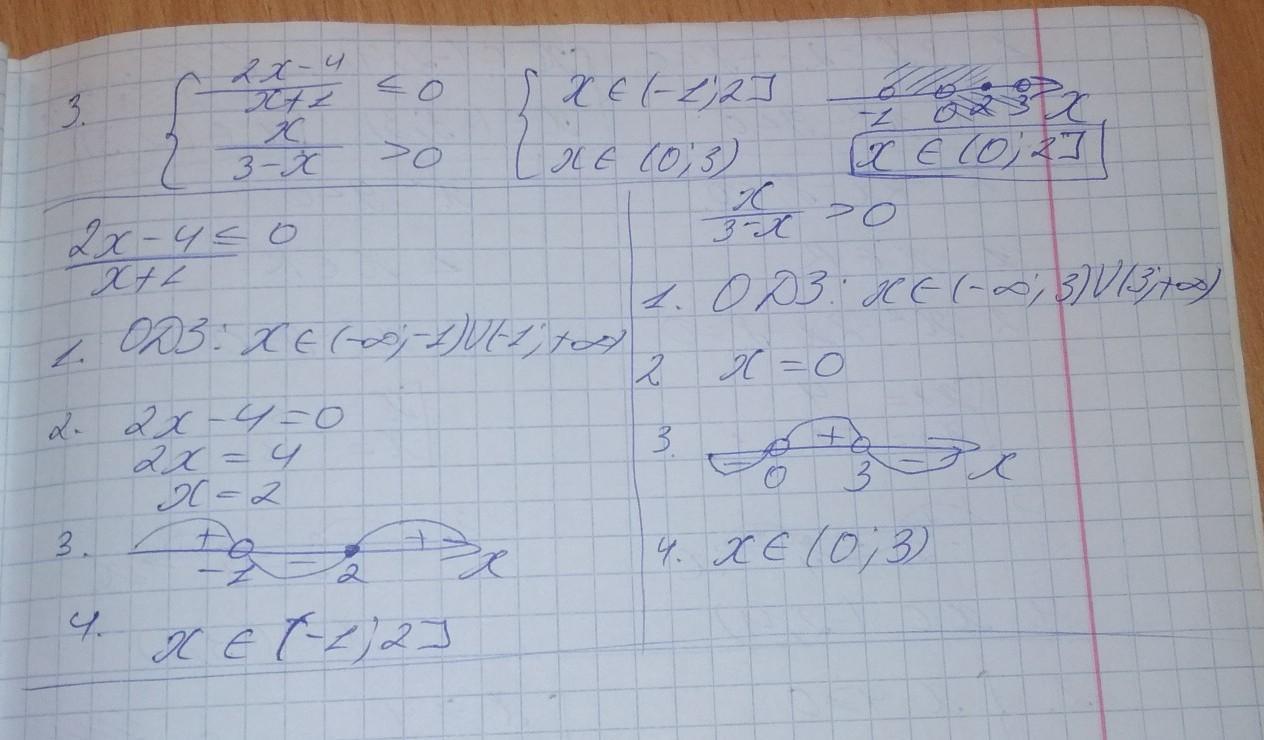 3. { (2x-4)/(x+1) ≤ 0 { x ∈ (-1; 2] -1 0 2 3 x
x/(3-x) > 0 x ∈ (0; 3) x ∈ (0; 2]
(2x-4)/(x+1) ≤ 0
1. ОДЗ: x ∈ (-∞; -1)U(-1; +∞)
2. 2x - 4 = 0
2x = 4
x = 2
3. + -1 - 2 + x
4. x ∈ (-1; 2]
x/(3-x) > 0
1. ОДЗ: x ∈ (-∞; 3)U(3; +∞)
2 x = 0
3. - 0 + 3 - x
4. x ∈ (0; 3)